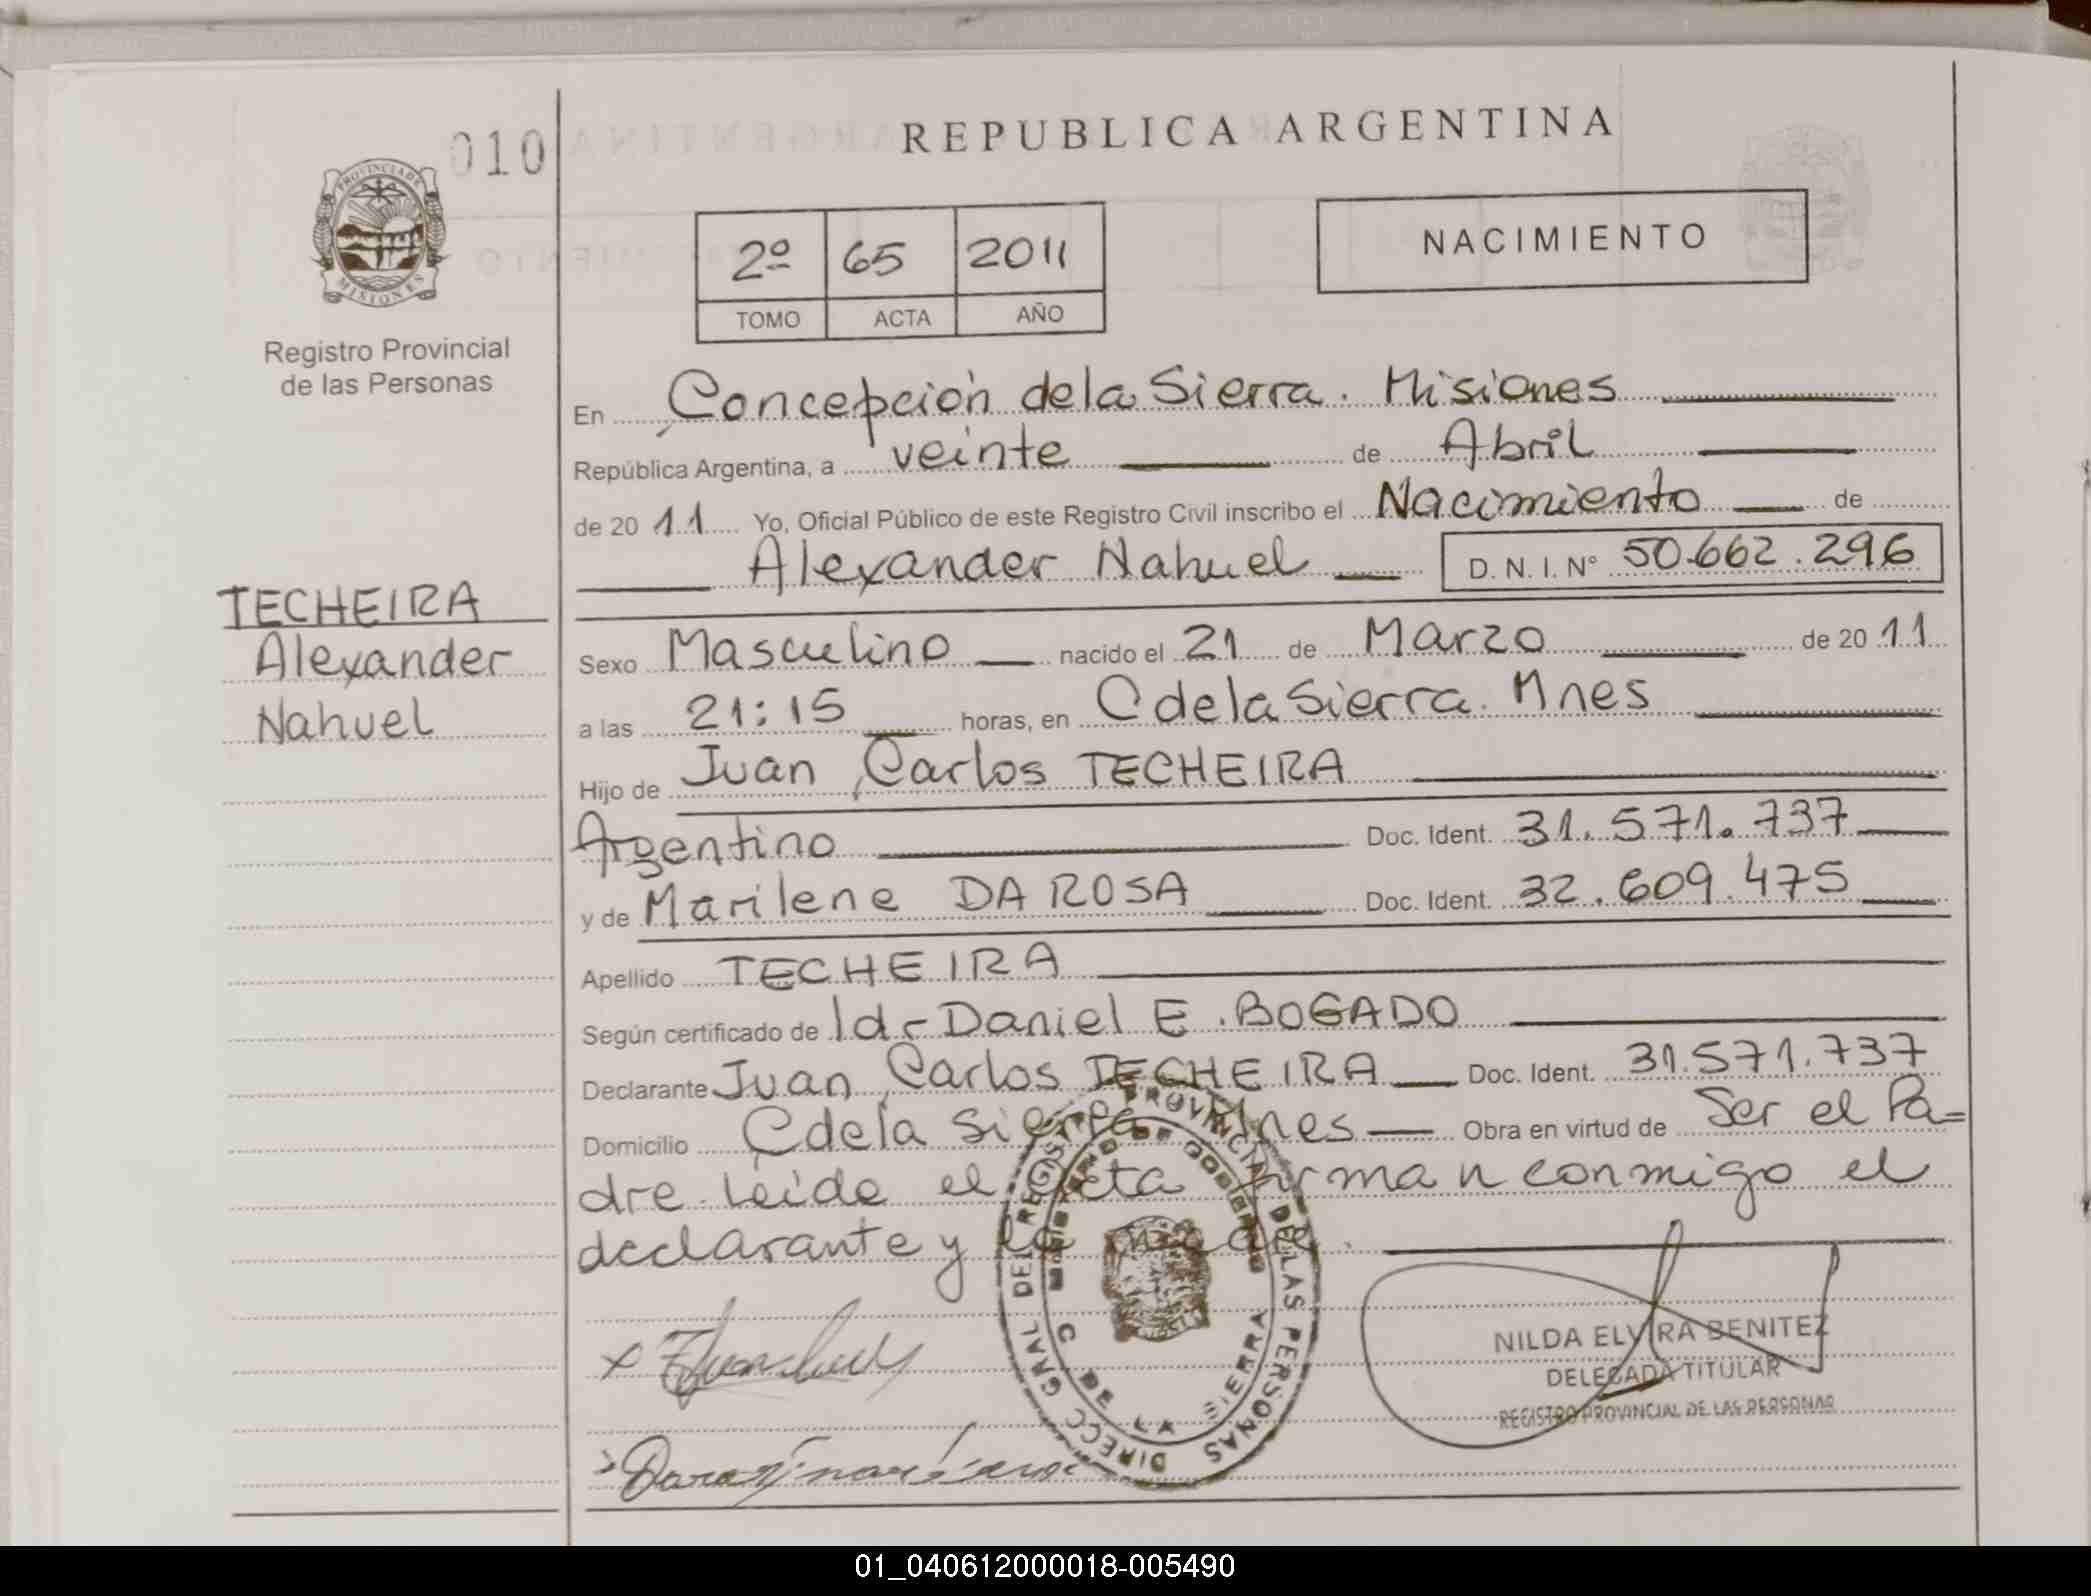 010
REPUBLICA ARGENTINA
PROVINCIA DE MISIONES
Registro Provincial
de las Personas
2º 65 2011
TOMO ACTA AÑO
NACIMIENTO
En Concepción de la Sierra. Misiones
República Argentina, a veinte de Abril
de 2011 Yo, Oficial Público de este Registro Civil inscribo el Nacimiento de
Alexander Nahuel D.N.I.Nº 50.662.296
TECHEIRA
Alexander
Nahuel
Sexo Masculino nacido el 21 de Marzo de 2011
a las 21:15 horas, en C de la Sierra. Mnes
Hijo de Juan Carlos TECHEIRA
Argentino Doc. Ident. 31.571.737
y de Marilene DA ROSA Doc. Ident. 32.609.475
Apellido TECHEIRA
Según certificado de Idr Daniel E. BOGADO
Declarante Juan Carlos TECHEIRA Doc. Ident. 31.571.737
Domicilio C de la Sierra Mnes Obra en virtud de Ser el Pa=
dre leida el acta firman conmigo el
declarante y la madre.
DIRECC GRAL DEL REGIST PROVINCIAL DE LAS PERSONAS
C DE LA SIERRA
NILDA ELVIRA BENITEZ
DELEGADA TITULAR
REGISTRO PROVINCIAL DE LAS PERSONAS
01_040612000018-005490